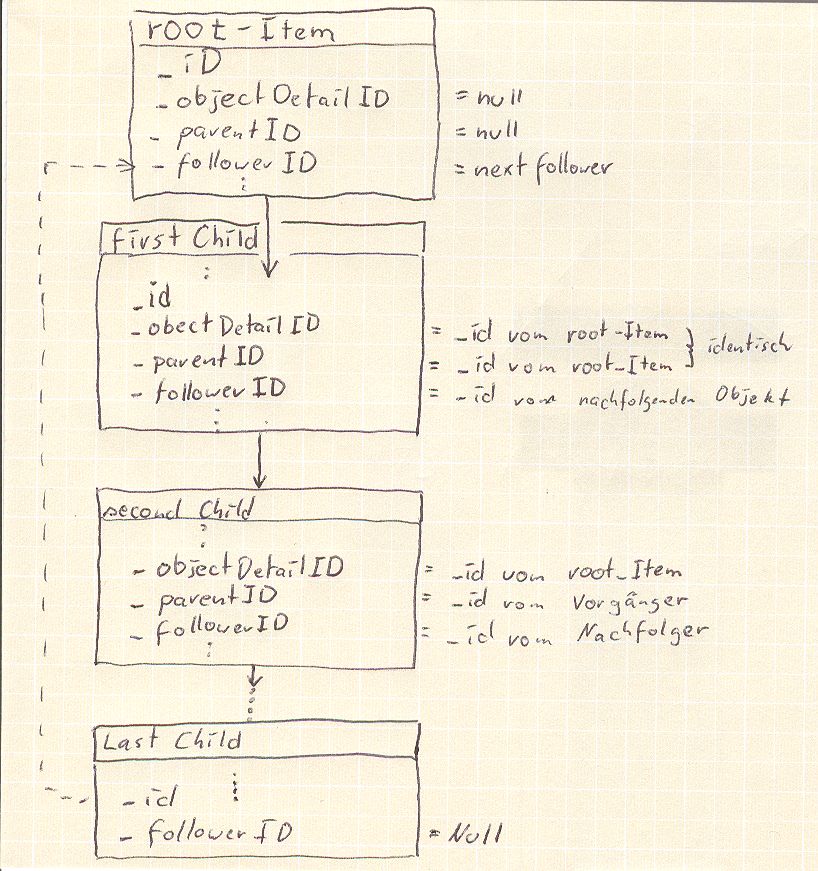 root-Item
_iD
-objectDetailID = null
- parentID = null
- followerID = next follower
first Child
_id
-obectDetailID = _id vom root-Item } identisch
- parentID = _id vom root_Item
- followerID = -id vom nachfolgenden Objekt
second Child
- objectDetailID = _id vom root_Item
- parentID = _id vom Vorgänger
- followerID = _id vom Nachfolger
Last Child
-id
- followerID = Null